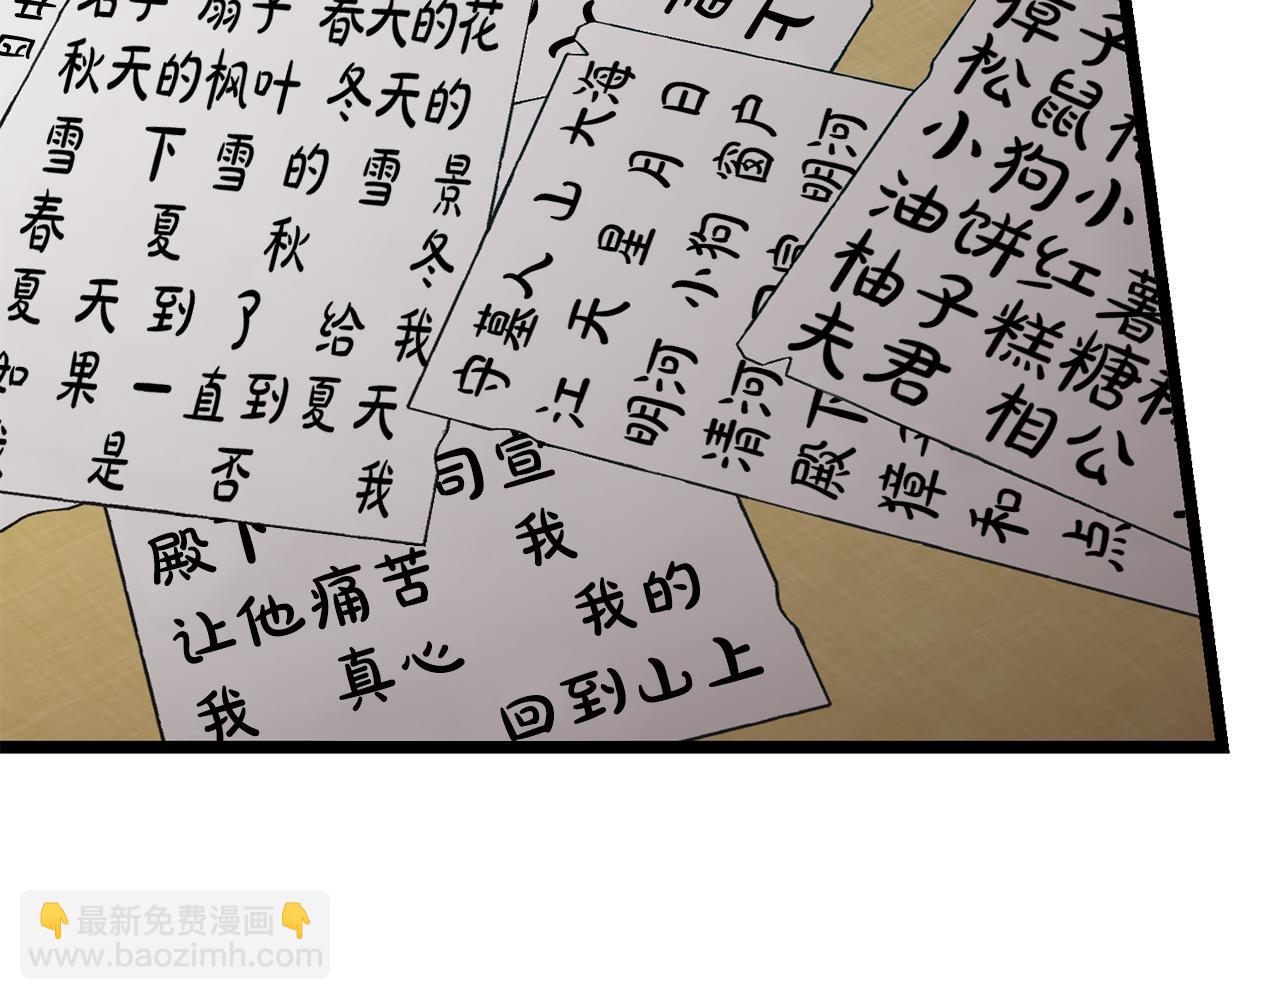 扇子 春天的花
秋天的枫叶 冬天的
雪 下 雪 的 雪 景
春 夏 秋 冬
夏 天 到 了 给 我
如 果 一 直 到 夏 天
我 是 否 我
大海
守墓人 山
日
江 天 星 月
窗户
明河 小狗
明河
清河
殿下
獐
和
点
獐子
松鼠
小狗 小
油饼 红薯
柚子 糕 糖
夫君 相公
司宣
殿下 我
让他痛苦 我的
我 真心 回到山上
👇最新免费漫画👇
www.baozimh.com